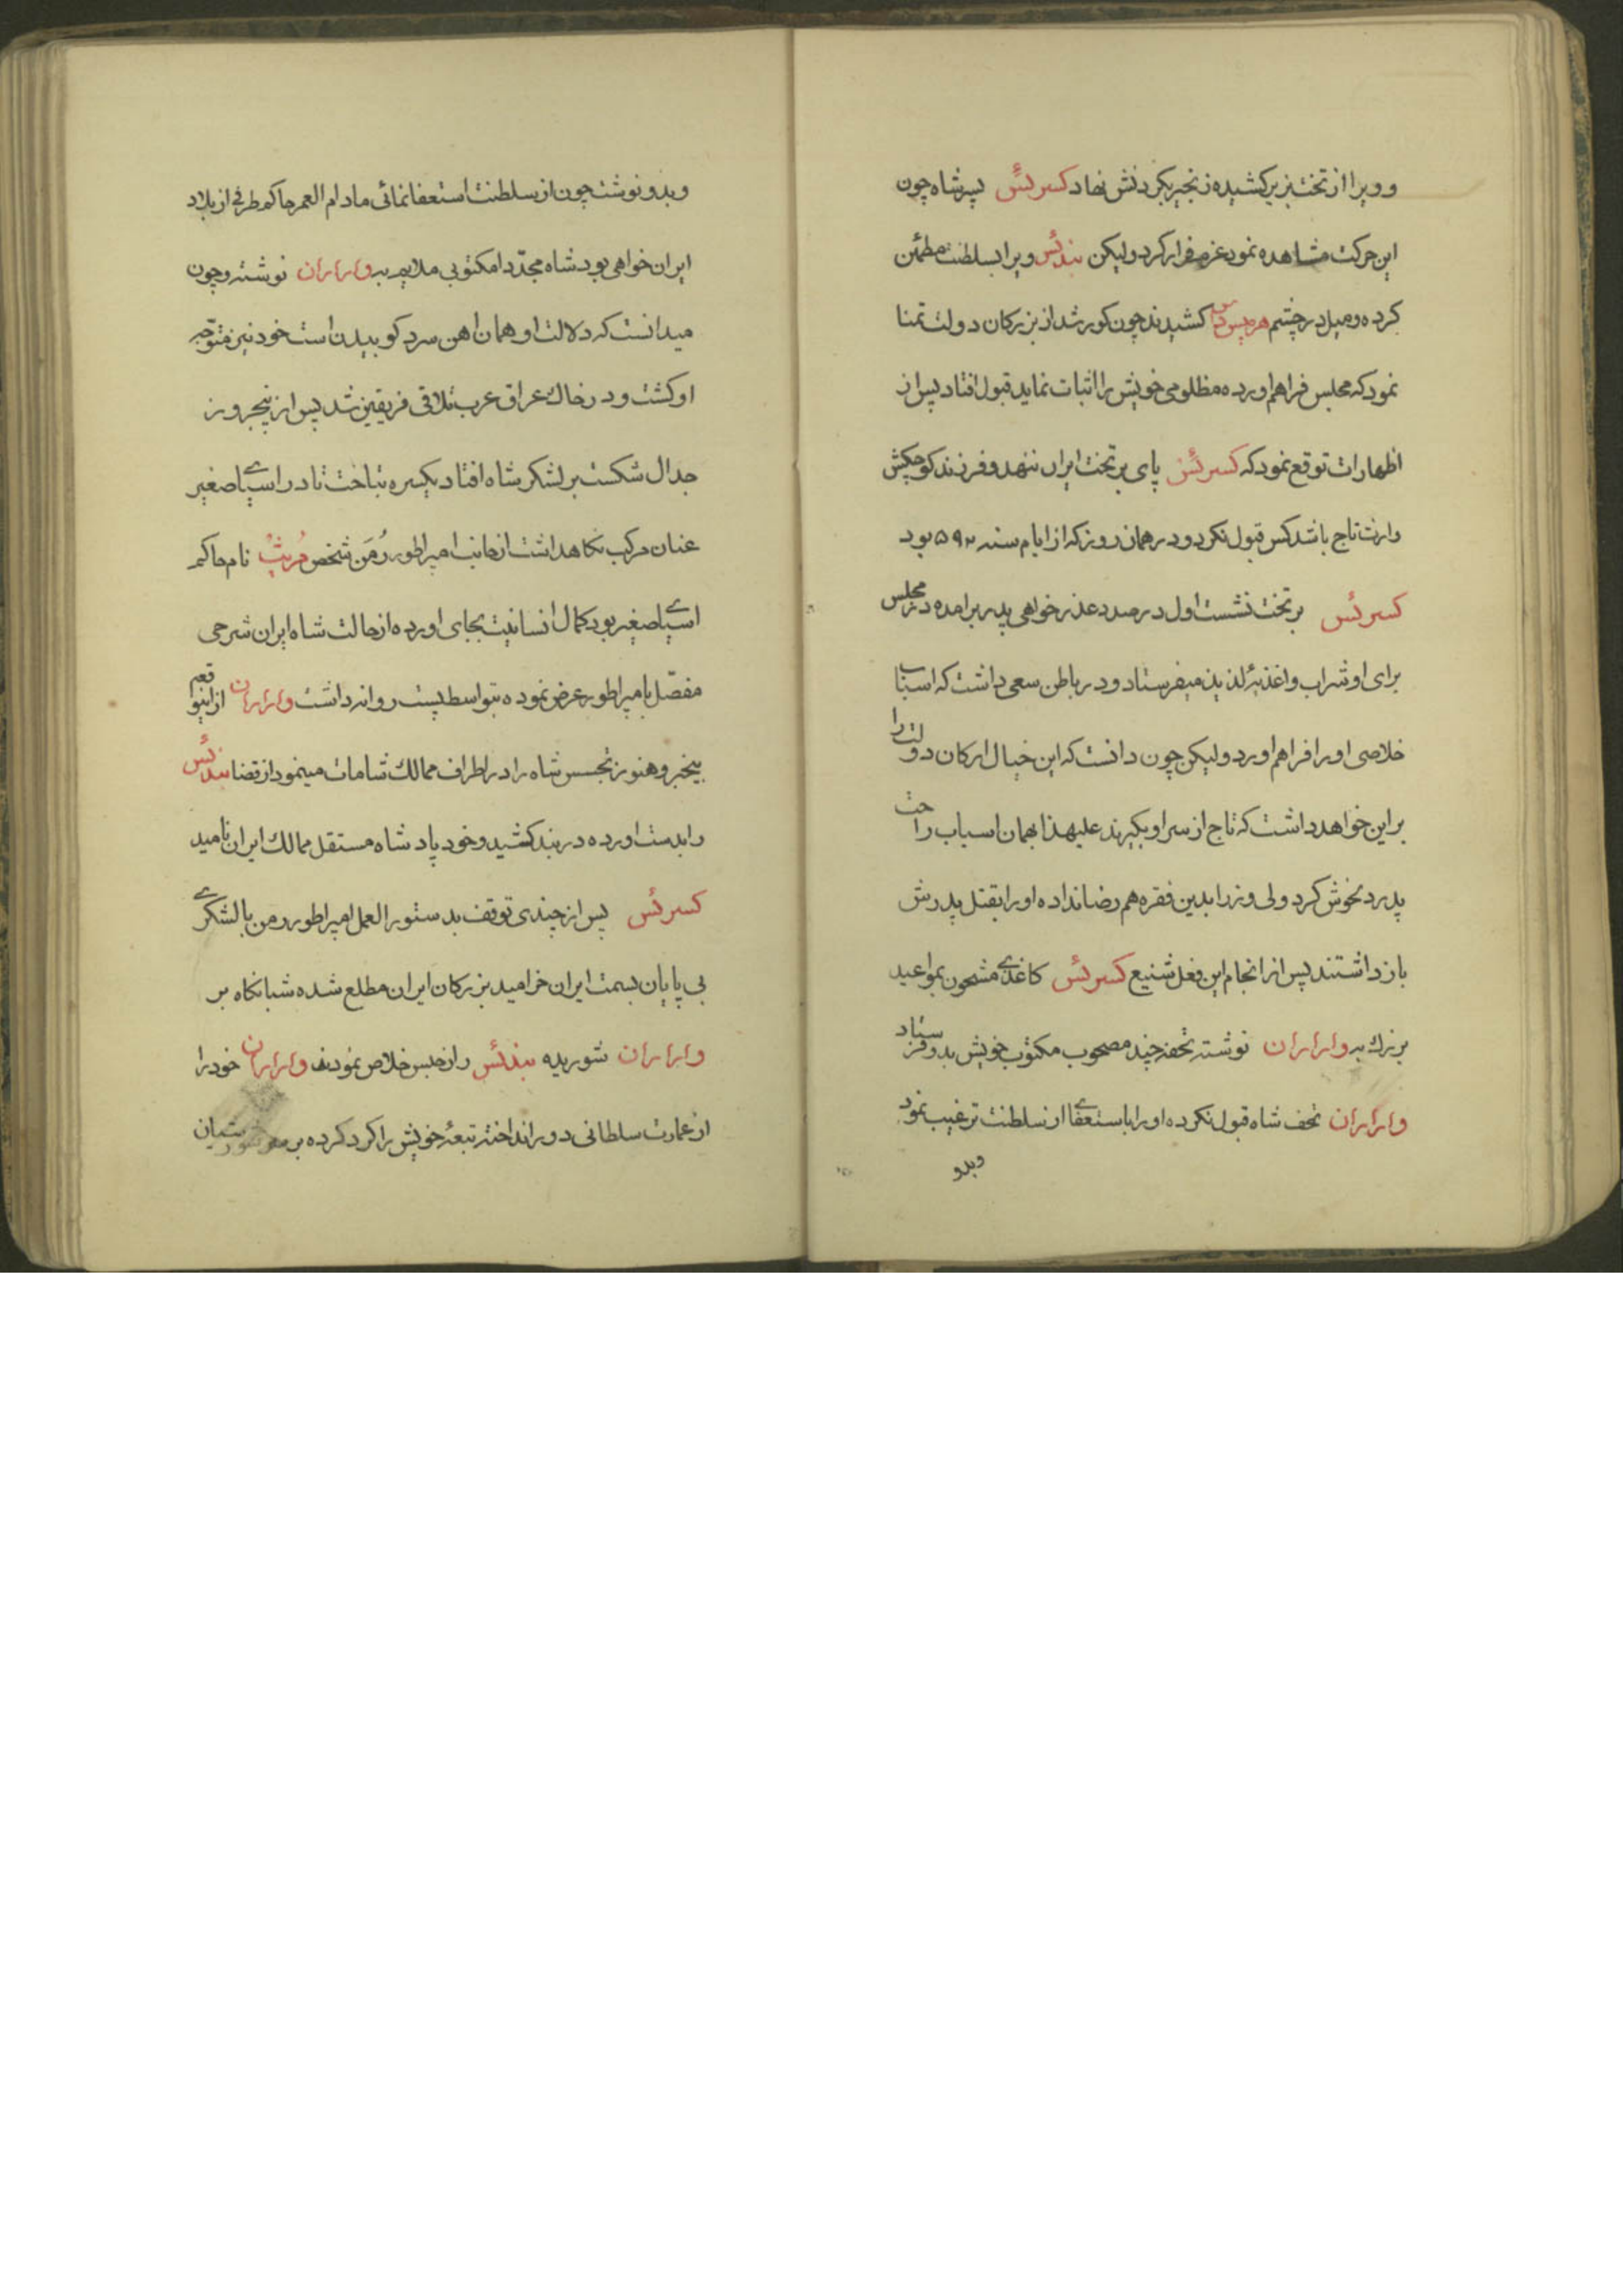 و ویرا از تخت بزیر کشیده زنجیر بکردنش نهاد کسرئس پسر شاه چون
این حرکت مشاهده نمود عزم فرار کرد ولیکن بندئس ویرا بسلطنت مطمئن
کرده و میل در چشم کشیدند چون کور شد از بزرکان دولت تمنا
نمود که مجلس فراهم اورده مظلومی خویش را اثبات نماید قبول افتاد پس از
اظهارات توقع نمود که کسرئس پای بر تخت ایران ننهد و فرزند کوچکش
وارث تاج باشد کس قبول نکرد و در همان روز که از ایام سنه ۵۹۲ بود
کسرئس بر تخت نشست اول در صدد عذر خواهی پدر برامده در مجلس
برای او شراب و اغذیهٔ لذیذ میفرستاد و در باطن سعی داشت که اسباب
خلاصی او را فراهم اورد ولیکن چون دانست که این خیال ارکان دولت را
بر این خواهد داشت که تاج از سر او بکیرند علیهذا بهمان اسباب راحت
پدر دلخوش کرد ولی وزرا بدین فقره هم رضا نداده او را بقتل پدرش
باز داشتند پس از انجام این فعل شنیع کسرئس کاغذی مشحون بمواعید
بزرك به وارااران نوشته تحفه چند مصحوب مکتوب خویش بدو فرستاد
وارااران تحف شاه قبول نکرده او را باستعفا از سلطنت ترغیب نمود
وبدو
وبدو نوشت چون از سلطنت استعفا نمائی مادام العمر حاکم طرفی از بلاد
ایران خواهی بود شاه مجدّدا مکتوبی ملایم به وارااران نوشته و چون
میدانست که دلالت او همان اهن سرد کوبیدن است خود نیز متوجه
او کشت و در خاك عراق عرب تلاقی فریقین شد پس از پنجروز
جدال شکست بر لشکر شاه افتاد یکسره بتاخت تا در اسیای صغیر
عنان مرکب نکاهداشت از جانب امپراطور رُمَن شخص نام حاکم
اسیای صغیر بود کمال انسانیت بجای اورده از حالت شاه ایران شرحی
مفصّل بامپراطور عرض نموده بتواسط پست روانه داشت وارااران از اینواقعه
بیخبر و هنوز تجسس شاه را در اطراف ممالك شامات مینمود از قضا بندئس
را بدست اورده در بند کشید و خود پادشاه مستقل ممالك ایران نامید
کسرئس پس از چندی توقف بدستور العمل امپراطور رمن با لشکری
بی پایان بسمت ایران خرامید بزرکان ایران مطلع شده شبانکاه بر
وارااران شوریده بندئس را از حبس خلاص نمودند وارااران خود را
از عمارت سلطانی دور انداخته تبعهٔ خویش را کرد کرده بر